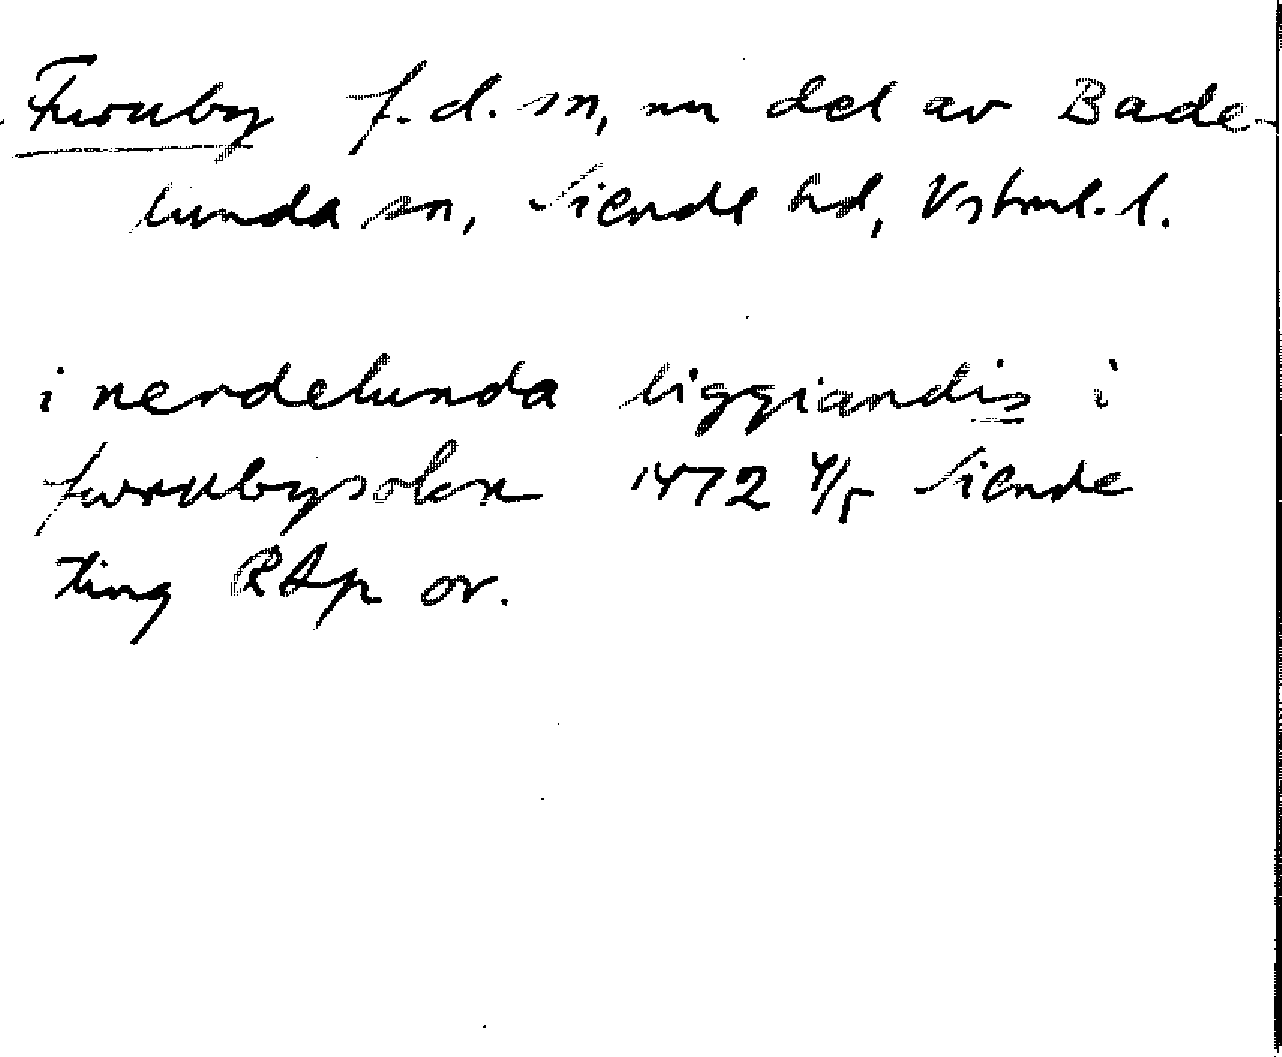 Furuby f.d. sn, nu del av Bade-
lunda sn, Siende hd, Vstml. l.
i nerdelunda liggiandis i
furubysokn 1472 4/5 Siende
ting RAp or.